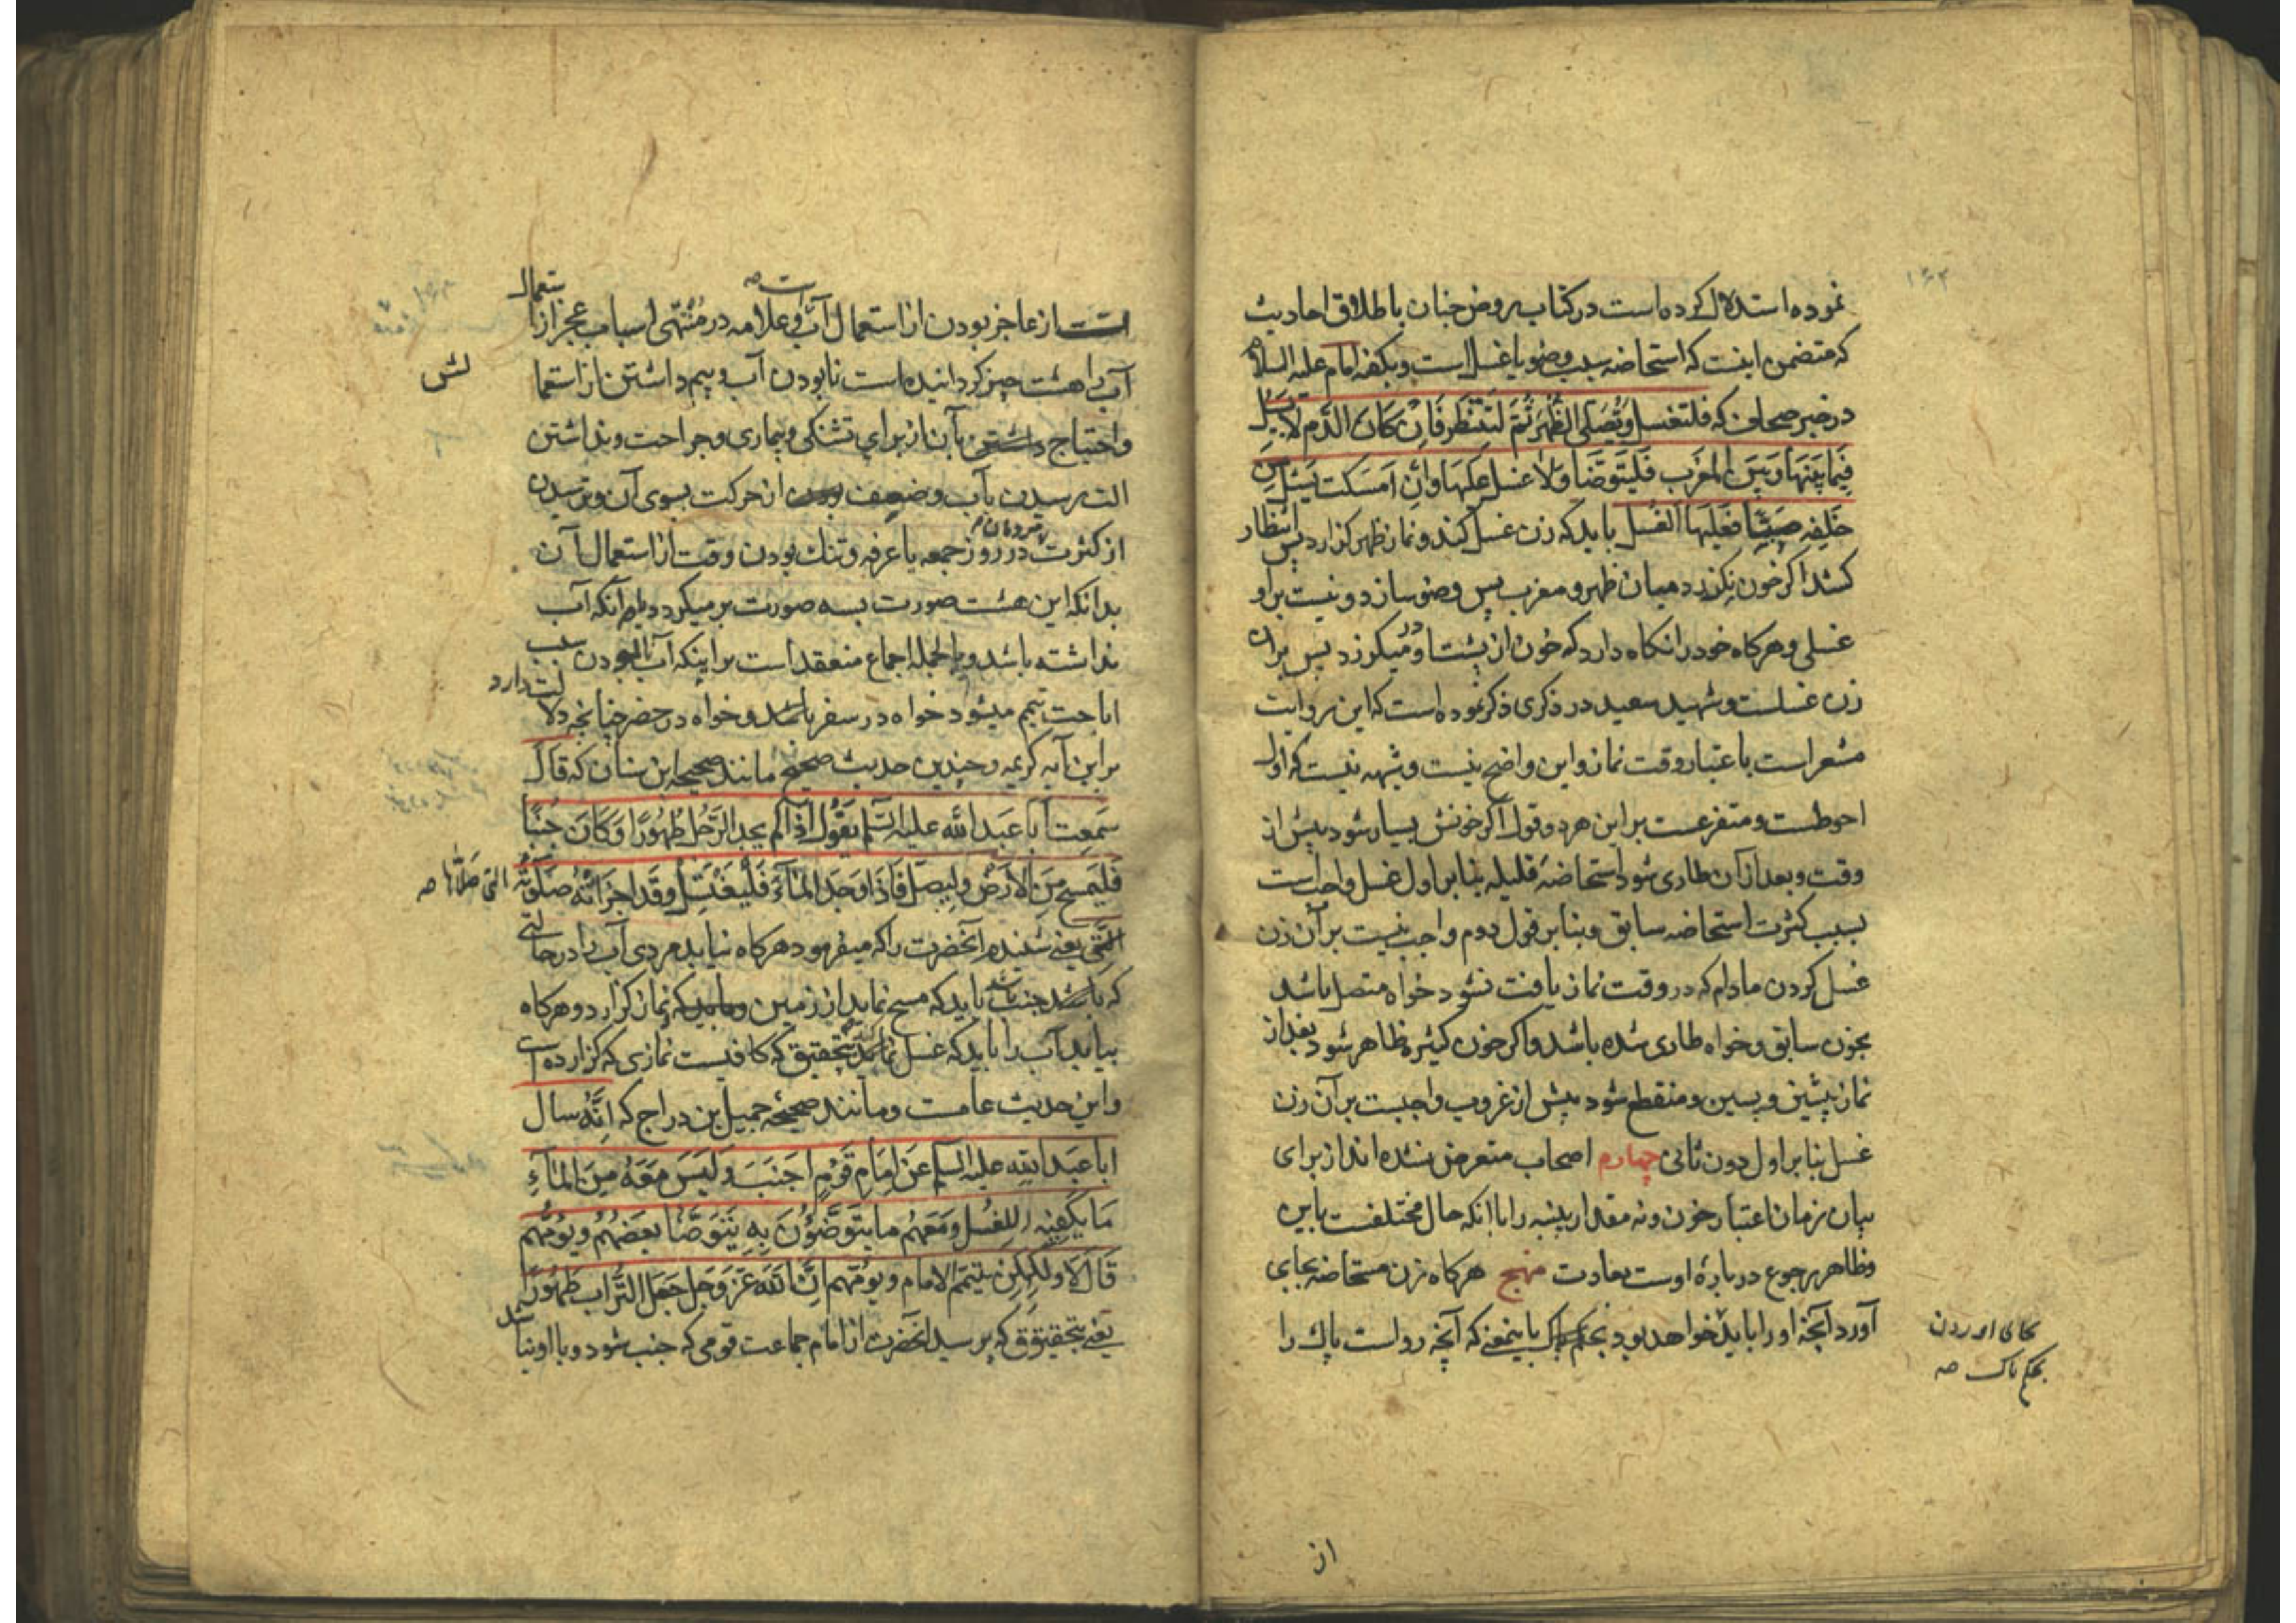 نموده استدلال کرده است در کتاب روض جنان باطلاق احادیث
که متضمن اینست که استحاضه سبب وضو یا غسل است و بکفته امام علیه السلام
در خبر صحاف که فلتغتسل وتصلی الظهر ثم لتنظر فان کان الدم لا یسیل
فیما بینها وبین المغرب فلیتوضا ولا غسل علیها وان امسکت یسیل من
خلفه صبیبا فعلیها الغسل باید که زن غسل کند و نماز ظهر کزارد پس انتظار
کشد اکر خون نکذرد میان ظهر و مغرب پس وضو سازد و نیست بر او
غسلی و هرکاه خود را نکاه دارد که خون از پشت او در میکرزد پس بر آن
زن غسلست و شهید سعید در ذکری ذکر نموده است که این روایت
مشعر است باعتبار وقت نماز و این واضح نیست و شبهه نیست که اول
احوطست و متفرعست بر این هر دو قول اکر خونش بسیار شود پیش از
وقت و بعد از آن طاری شود استحاضه قلیله بنا بر اول غسل واجبست
بسبب کثرت استحاضه سابق و بنا بر قول دوم واجب نیست بر آن زن
غسل کردن مادام که در وقت نماز یافت نشود خواه متصل باشد
بخون سابق و خواه طاری شده باشد و اکر خون کثیره ظاهر شود بعد از
نماز پیشین و پسین و منقطع شود پیش از غروب واجبست بر آن زن
غسل بنا بر اول دون ثانی چهارم اصحاب متعرض نشده اند از برای
بیان زمان اعتبار خون و نه مقدار پنبه را با انکه حال مختلفست باین
و ظاهر رجوع در باره اوست بعادت منهج هرکاه زن مستحاضه بجای
آورد آنچه او را باید خواهد بود بحکم پاک باینمعنی که آنچه رواست پاک را
بجای اوردن
بحکم پاک صه
از
است از عاجز بودن از استعمال آب و علامه در منتهی اسباب عجز از استعمال
آب را هشت چیز کردانیده است نابودن آب و بیم داشتن از استعما
لش
و احتیاج داشتن بآن از برای تشنکی و بیماری و جراحت و نداشتن
الت رسیدن بآب و ضعیف بودن از حرکت بسوی آن و ترسیدن
از کثرت مردمان در روز جمعه یا عرفه و تنک بودن وقت از استعمال آن
بدانکه این هشت صورت بسه صورت برمیکردد اول آنکه آب
نداشته باشد و بالجمله اجماع منعقد است بر اینکه آب نابودن سبب
اباحت تیمم میشود خواه در سفر باشد و خواه در حضر چنانچه دلالت دارد
بر این آیه کریمه و چندین حدیث صحیح مانند صحیحه ابن سنان که قال
سمعت ابا عبد الله علیه السلم یقول اذا لم یجد الرجل طهورا وکان جنبا
فلیمسح من الارض ولیصل فاذا وجد الماء فلیغتسل وقد اجزاته صلوته
التی صلاها صه
التی یعنی شنیدم آنحضرت را که میفرمود هرکاه نیابد مردی آب را در حالتی
که باشد جنب باید که مسح نماید از زمین و باید که نماز کزارد و هرکاه
بیابد آب را باید که غسل نماید بتحقیق که کافیست نمازی که کزارده است
و این حدیث عامست و مانند صحیحه جمیل بن دراج که انه سال
ابا عبد الله علیه السلم عن امام قوم اجنب ولیس معه من الماء
ما یکفیه للغسل ومعهم ما یتوضؤن به یتوضا بعضهم ویؤمهم
قال لا ولکن یتیمم الامام ویؤمهم ان الله عز وجل جعل التراب طهورا
یعنی بتحقیق که پرسید آنحضرت از امام جماعت قومی که جنب شود و با او نباشد